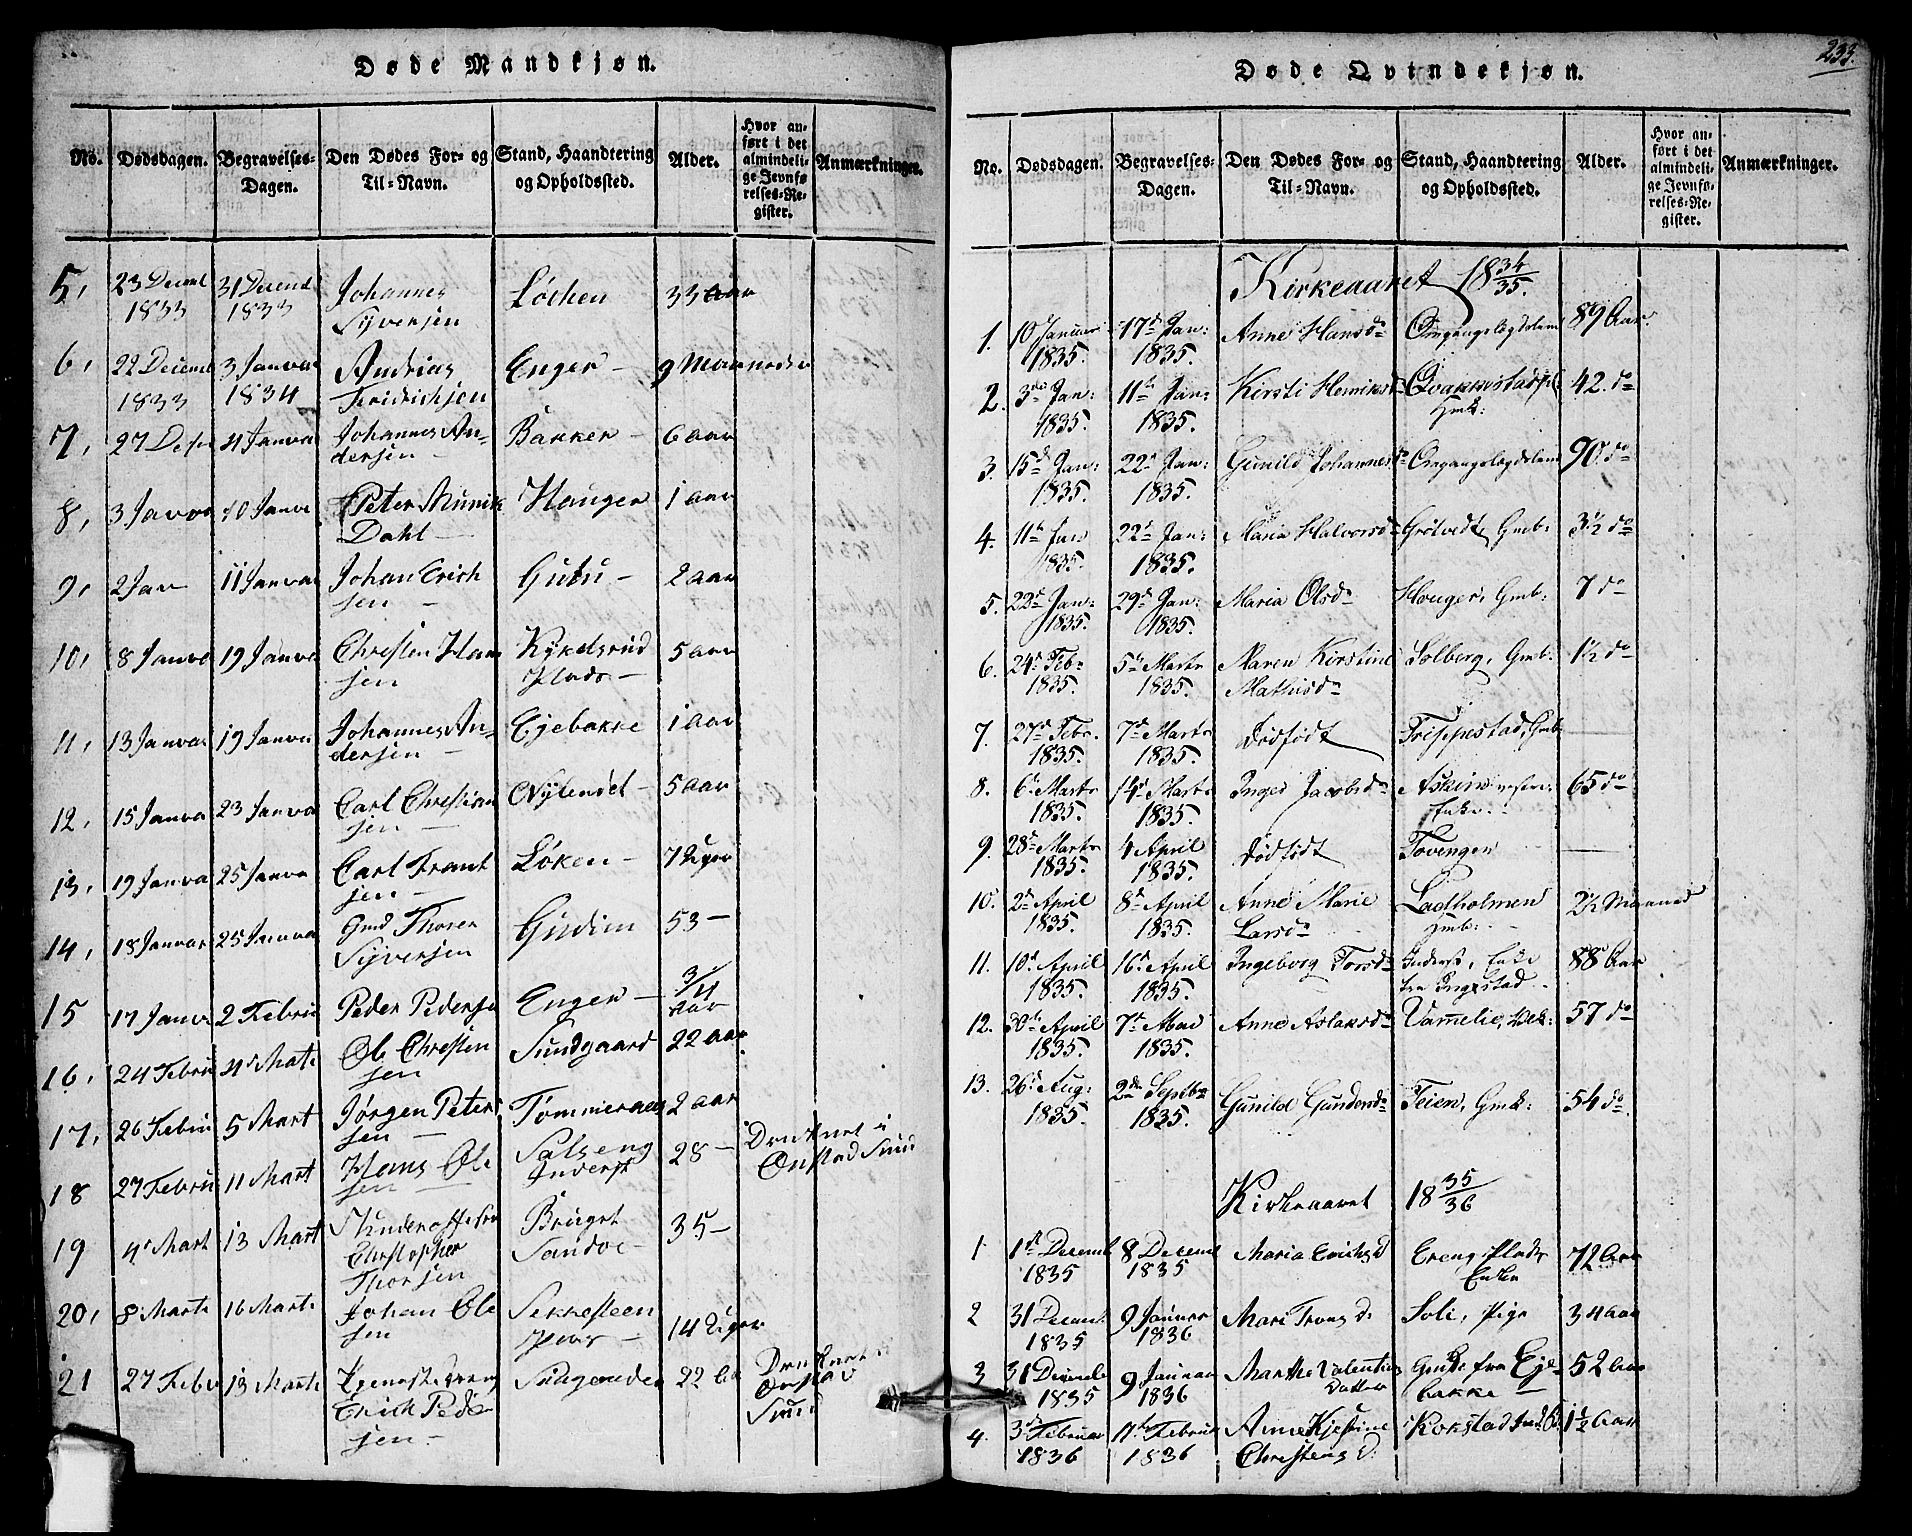 233.
Døde Mandkjøn.
No. Dødsdagen. Begravelses-Dagen. Den Dødes For- og Til-Navn. Stand, Haandtering og Opholdssted. Alder. Hvor anført i det almindelige Jevnførelses-Register. Anmærkninger.
5, 23 Decemb 1833 31 Decemb 1833 Johannes Syversen Löchen 33 aar
6, 22 Decemb 1833 3 Janvar 1834 Andrias Fridrichsen Enger 9 Maaneder
7, 27 De 4 Janva Johannes Andersen Bakker 6 aar
8, 3 Janva 10 Janva Peter Munik Dahl Hauger 1 aar
9, 2 Jan 11 Janva Johan Erichsen Gutu 2 aar
10, 8 Janva 19 Janva Christen Hansen Kykelsrud Plads 5 aar
11, 13 Janvar 19 Janva Johannes Andersen Ejebakke 1 aar
12, 15 Janva 23 Janva Carl Christiansen Nylendet 5 aar
13, 19 Janva 25 Janva Carl Frantsen Löken 7 Uger
14, 18 Janvar 25 Janva Gmd Thorer Syversen Gudim 53
15 17 Janva 2 Febru Peder Pedersen Enger 3/4 aar
16, 24 Febru 4 Marts Ole Christensen Sundgaard 22 aar
17, 26 Febru 5 Mart Jørgen Petersen Tømmeraas 2 aar
18 27 Febru 11 Mart Hans Olesen Inderst 28 Druknet i Onstad Sund
19 4 Mart 13 Mart Christopher Thorsen Bruget Sandoe 35
20, 8 Marts 16 Marts Johan Olesen Sekkesteen 14 Uger
21 27 Febru 13 Marts Erich Pedersen 22 aar Druknet i Onstad Sund
Døde Qvindekjøn.
No. Dødsdagen. Begravelses-Dagen. Den Dødes For- og Til-Navn. Stand, Haandtering og Opholdssted. Alder. Hvor anført i det almindelige Jevnførelses-Register. Anmærkninger.
Kirkeaaret 18 34/35.
1. 10 Januar 1835. 17d Jan: 1835. Anne Hansd. Omgangslægdslem 89 Aar.
2. 3die Jan: 1835. 11te Jan: 1835. Kirsti Henriksd. Gmk: 42. do
3. 15d Jan: 1835. 22d Jan: 1835. Gunild Johannesd. Omgangslægdslem 90. do
4. 11te Jan 1835. 22d Jan: 1835. Maria Halvorsd. Grötvedt, Gmb: 3½ do
5. 22d Jan: 1835. 29d Jan: 1835. Maria Olsd. Houger, Gmb: 7 do
6. 24d Feb. 1835. 5te Marts 1835. Maren Kirstine Mathisd. Solberg, Gmb: 1½ do
7. 27d Febr. 1835. 7d Marts 1835. Dødfødt Trippestad, Gmb.
8. 6te Marts 1835. 14d Marts 1835. Inger Jacobsd. Askim Enke. 65 do
9. 28d Marts 1835. 4 April 1835. Dødfødt Tovengen
10. 2d April 1835. 8d April 1835. Anne Marie Larsd. Ladholmen Gmb: 2½ Maaned
11. 10d April 1835. 16d April 1835. Ingeborg Torsd. Inderst, Enke fra Ingstad. 88 Aar
12. 30te April 1835. 7d Mai 1835. Anne Aslaksd. Vammelie, 57 do
13. 26d Aug: 1835 2den Septbr 1835. Gunild Gundersd. Teien, Gmk: 54 do
Kirkeaaret 18 35/36
1 1d Decemb 1835 8 Decemb 1835 Maria Erichsd Ereng Plads Enke 72 Aar
2 31 Decemb. 1835 9 Januar 1836 Mari Tronsd. Soli, Pige 34 Aar
3 31 Decemb 1835 9 Januar 1836 Marthe Valentins Datter Gmk fra Ejebakke 52 Aar
4. 3d Februar 1836 11te Februar 1836 Anne Kjestine Christensd. Rokstad 1½ Aar